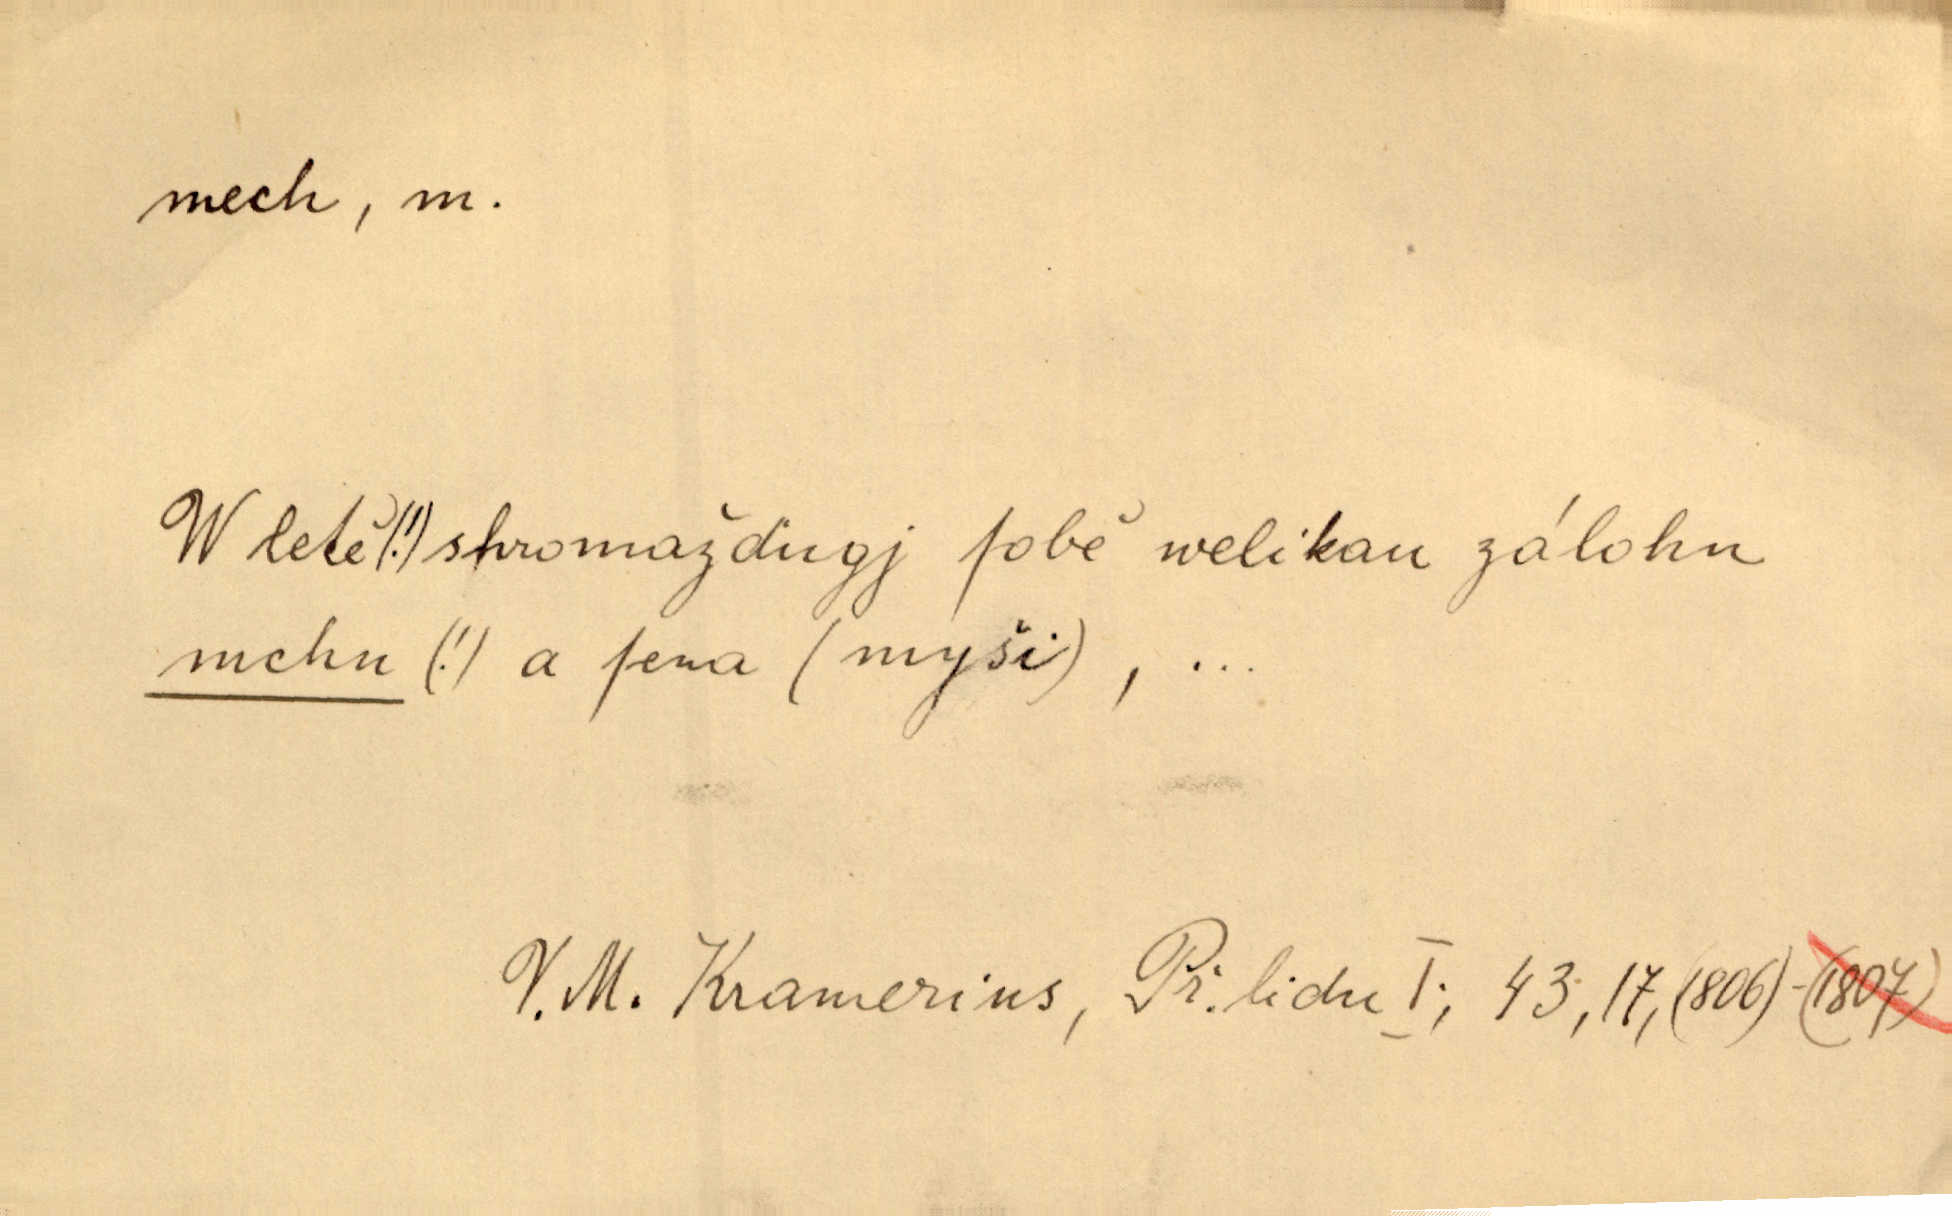 mech, m.
W letě(!) shromažďugj ſobě welikau zálohu
mchu (!) a ſena (myši), ...
V. M. Kramerius, Př. lidu I; 43, 17, (1806)-(1807)